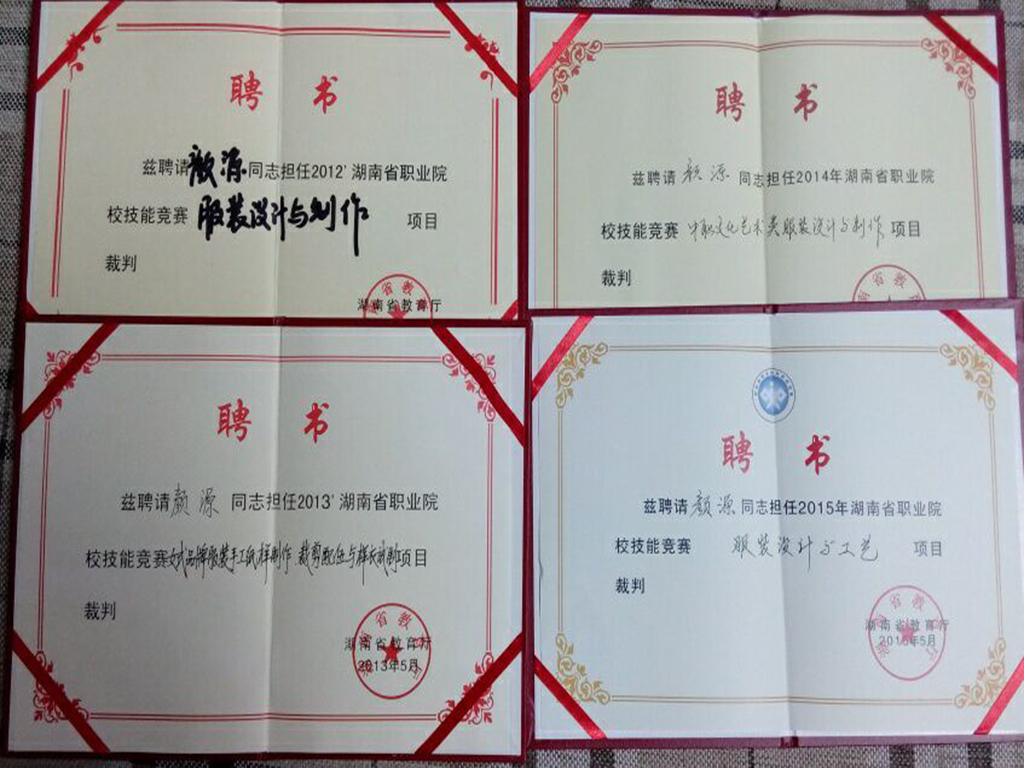 聘 书
兹聘请颜源同志担任2012'湖南省职业院
校技能竞赛 服装设计与制作 项目
裁判
湖南省教育厅
聘 书
兹聘请颜源 同志担任2014年湖南省职业院
校技能竞赛 中职文化艺术类服装设计与制作 项目
裁判
聘 书
兹聘请颜源 同志担任2013'湖南省职业院
校技能竞赛女式品牌服装手工纸样制作、裁剪配伍与样衣试制项目
裁判
湖南省教育厅
2013年5月
聘 书
兹聘请颜源同志担任2015年湖南省职业院
校技能竞赛 服装设计与工艺 项目
裁判
湖南省教育厅
2015年5月